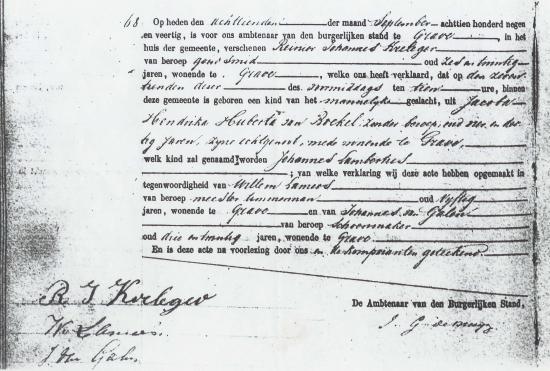 68 Op heden den achttienden der maand September achttien honderd negen
en veertig, is voor ons ambtenaar van den burgerlijken stand te Grave, in het
huis der gemeente, verschenen Reinier Johannes
van beroep goudsmid oud zes en twintig
jaren, wonende te Grave, welke ons heeft verklaard, dat op den
dezer des voormiddags ten tien ure, binnen
deze gemeente is geboren een kind van het mannelijke geslacht, uit Jacoba
Hendrika Huberta van Bockel, zonder beroep, oud vier en der
tig jaren, zijne echtgenoot, mede wonende te Grave,
welk kind zal genaamd worden Johannes Lambertus
; van welke verklaring wij deze acte hebben opgemaakt in
tegenwoordigheid van Willem
van beroep meester timmerman oud vijftig
jaren, wonende te Grave en van Johannes van
van beroep Schoenmaker
oud drie en twintig jaren, wonende te Grave
En is deze acte na voorlezing door ons en de komparanten geteekend.
R J
De Ambtenaar van den Burgerlijken Stand,
W
J. van
J. G